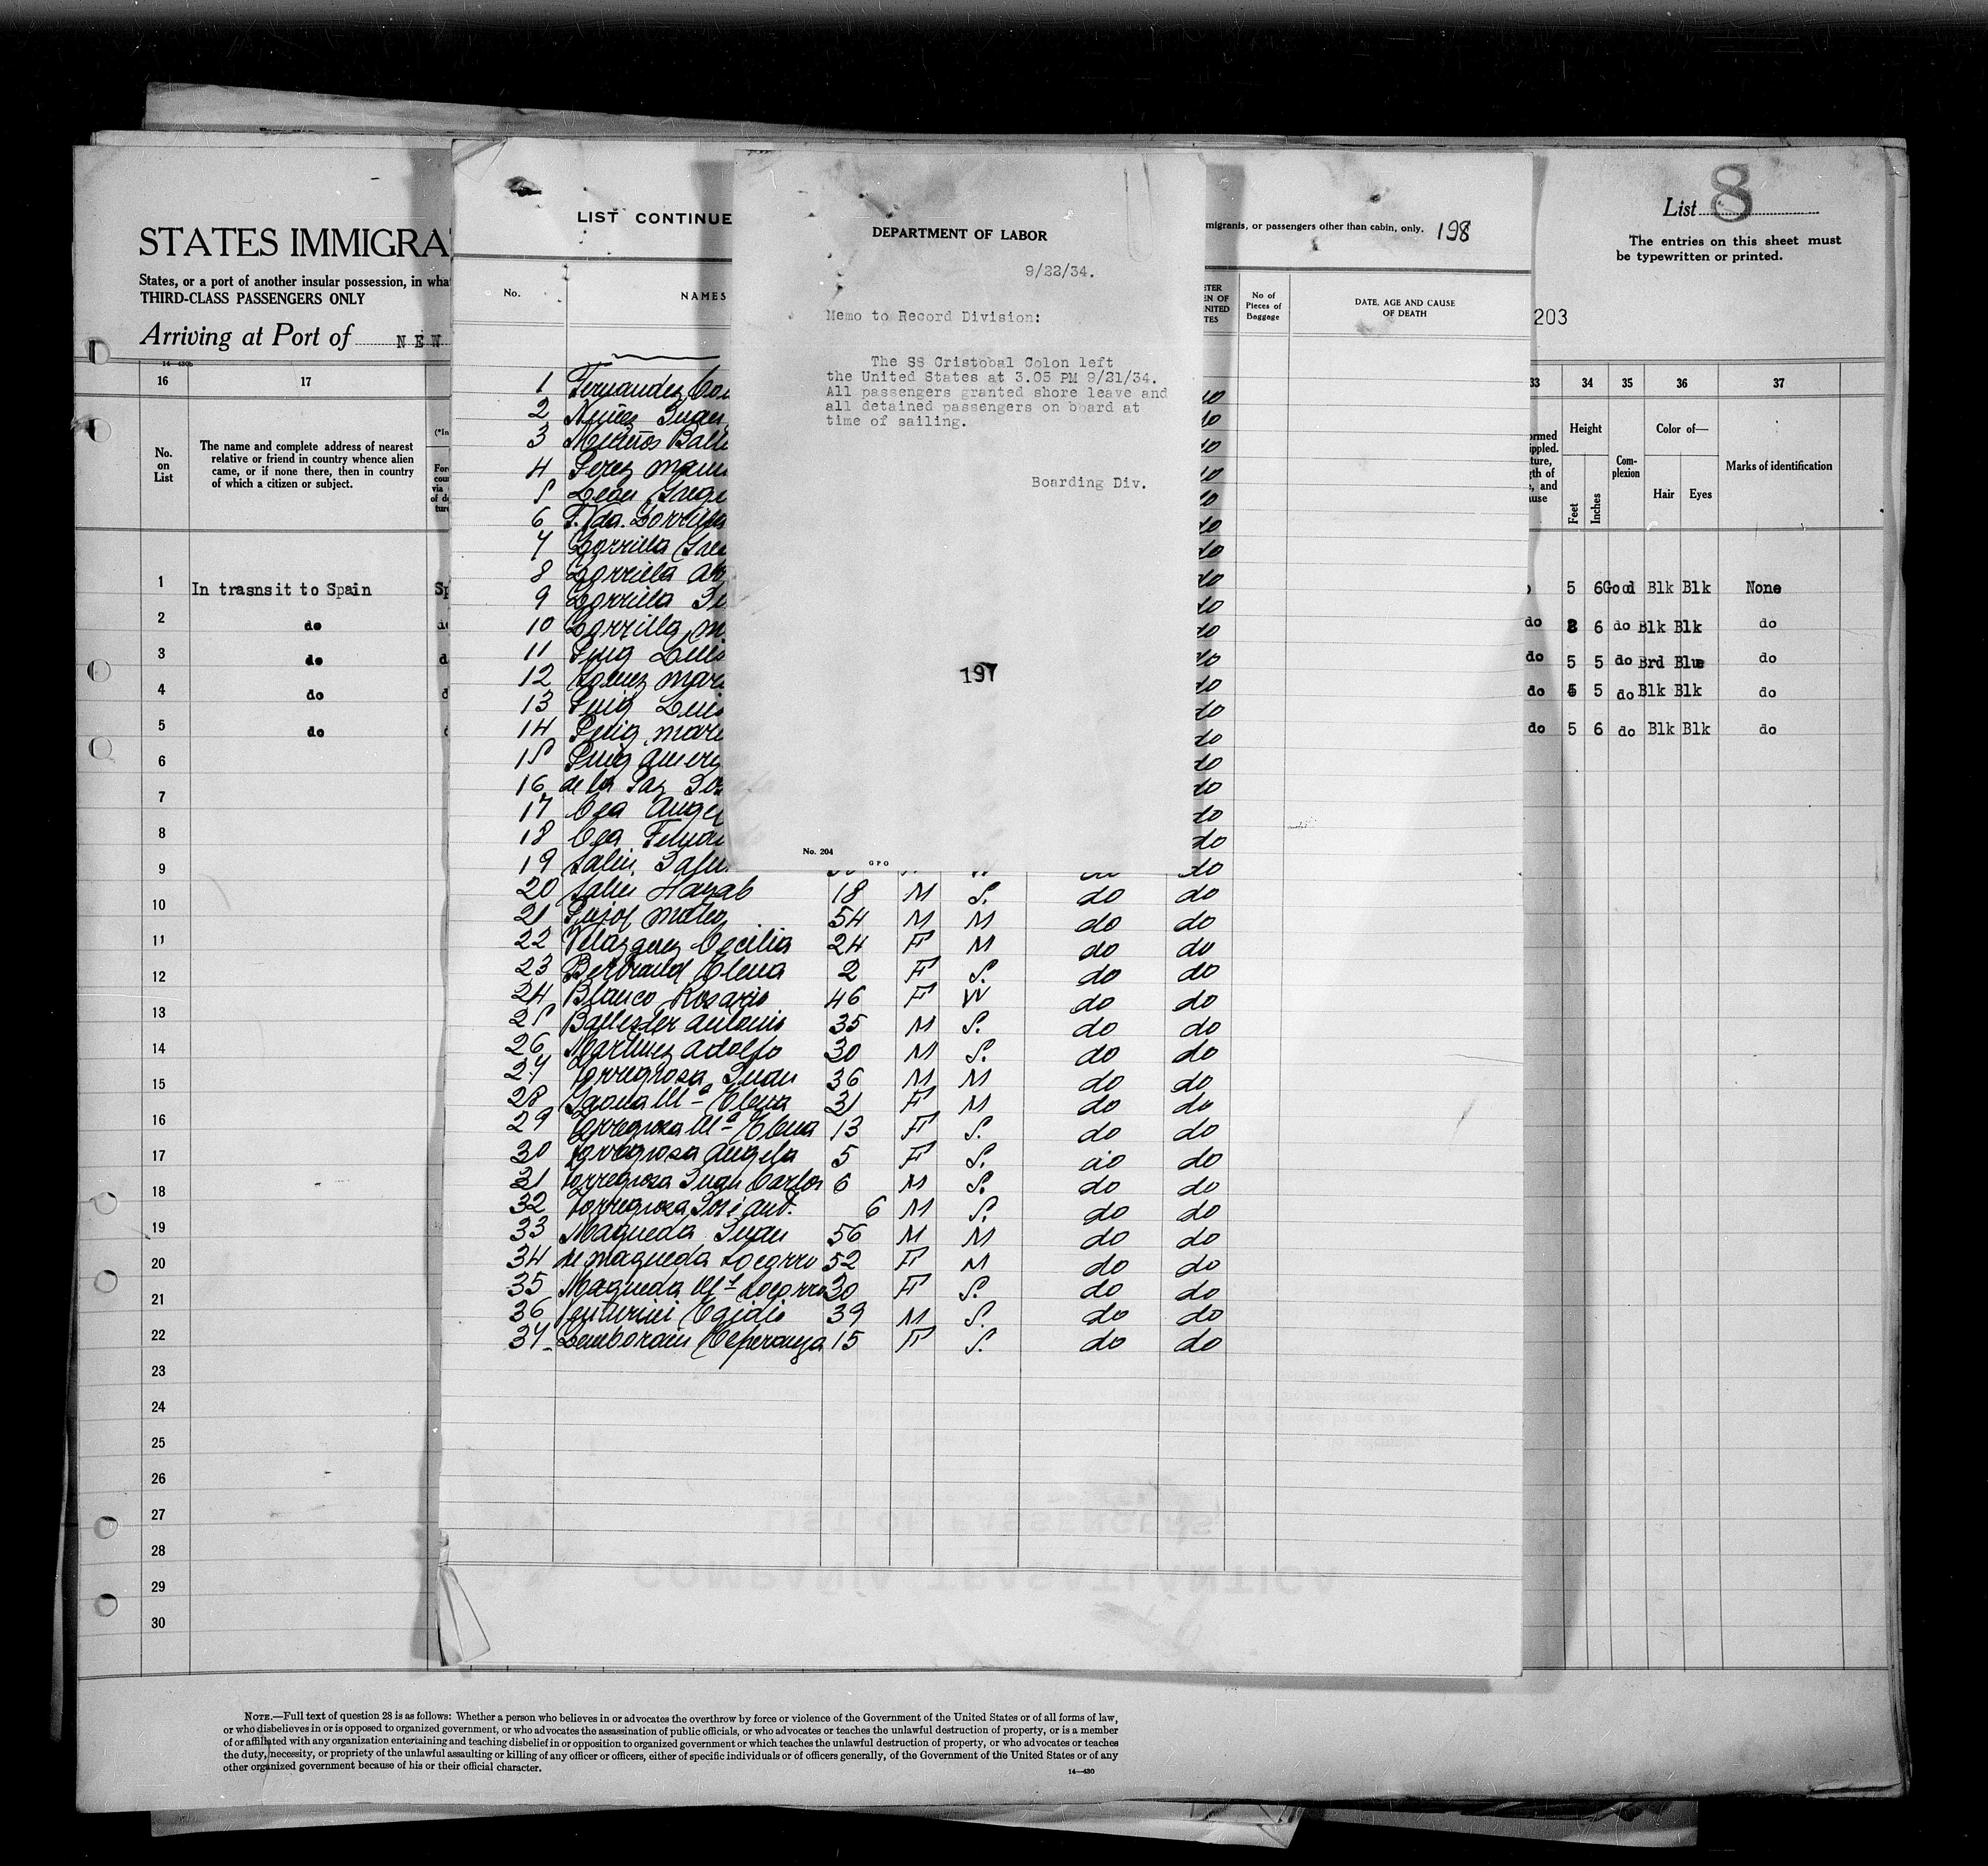 STATES IMMIGRA
States, or a port of another insular possession, in wha
THIRD-CLASS PASSENGERS ONLY
Arriving at Port of NEW
16 17
No. on List
The name and complete address of nearest
relative or friend in country whence alien
came, or if none there, then in country
of which a citizen or subject.
1 In trasnsit to Spain
2 do
3 do
4 do
5 do
6
7
8
9
10
11
12
13
14
15
16
17
18
19
20
21
22
23
24
25
26
27
28
29
30
LIST CONTINUE
migrants, or passengers other than cabin, only. 198
No. NAMES
No of Pieces of Baggage
DATE, AGE AND CAUSE
OF DEATH
DEPARTMENT OF LABOR
9/22/34.
Memo to Record Division:
The SS Cristobal Colon left
the United States at 3.05 PM 9/21/34.
All passengers granted shore leave and
all detained passengers on board at
time of sailing.
Boarding Div.
197
No. 204
GPO
1 Fernandez do
2 Nuñez Juan do
3 do
4 Perez Manu do
5 do
6 do
7 Zorrilla do
8 Zorrilla do
9 Zorrilla do
10 Zorrilla do
11 Puig Luis do
12 Gomez Mari do
13 Puig Luis do
14 Puig Mari do
15 Puig Ameri do
16 de la Paz Jos do
17 Cea Angel do
18 Cea do
19 Salin do
20 Salin 18 M S. do do
21 Pujol Mateo 54 M M do do
22 Velazquez Cecilia 24 F M do do
23 Bertrand Elena 2 F S. do do
24 Blanco Rosario 46 F W do do
25 Ballester Antonio 35 M S. do do
26 Martinez Adolfo 30 M S. do do
27 Torregrosa Juan 36 M M do do
28 Gaona Mª Elena 31 F M do do
29 Torregrosa Mª Elena 13 F S. do do
30 Torregrosa Angela 5 F S. do do
31 Torregrosa Juan Carlos 6 M S. do do
32 Torregrosa José Ant. 6 M S. do do
33 Maqueda Juan 56 M M do do
34 de Maqueda Socorro 52 F M do do
35 Maqueda Mª Socorro 30 F S. do do
36 Venturini Egidio 39 M S. do do
37 Lamborain Esperanza 15 F S. do do
List 8
The entries on this sheet must
be typewritten or printed.
203
33 34 35 36 37
Height Complexion Color of— Marks of identification
Feet Inches Hair Eyes
5 6 Good Blk Blk None
do 6 do Blk Blk do
do 5 5 do Brd Blue do
do 5 do Blk Blk do
do 5 6 do Blk Blk do
NOTE.—Full text of question 28 is as follows: Whether a person who believes in or advocates the overthrow by force or violence of the Government of the United States or of all forms of law,
or who disbelieves in or is opposed to organized government, or who advocates the assassination of public officials, or who advocates or teaches the unlawful destruction of property, or is a member
of or affiliated with any organization entertaining and teaching disbelief in or opposition to organized government or which teaches the unlawful destruction of property, or who advocates or teaches
the duty, necessity, or propriety of the unlawful assaulting or killing of any officer or officers, either of specific individuals or of officers generally, of the Government of the United States or of any
other organized government because of his or their official character.
14—430